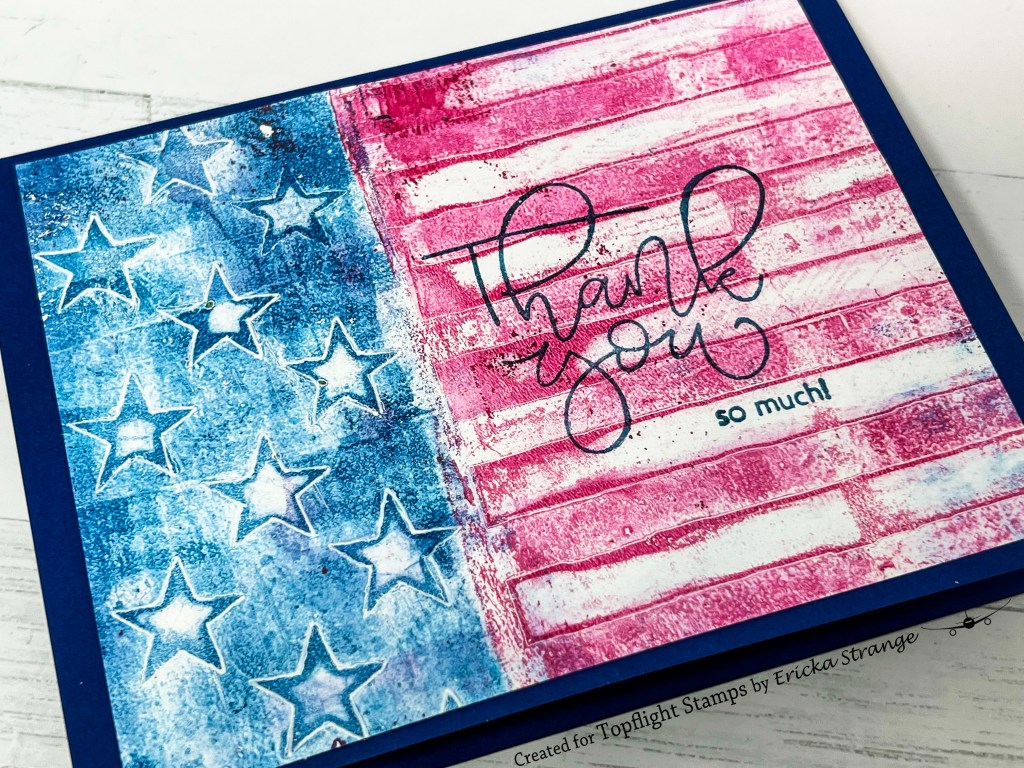 Thank
you
so much!
Created for Topflight Stamps by Ericka Strange